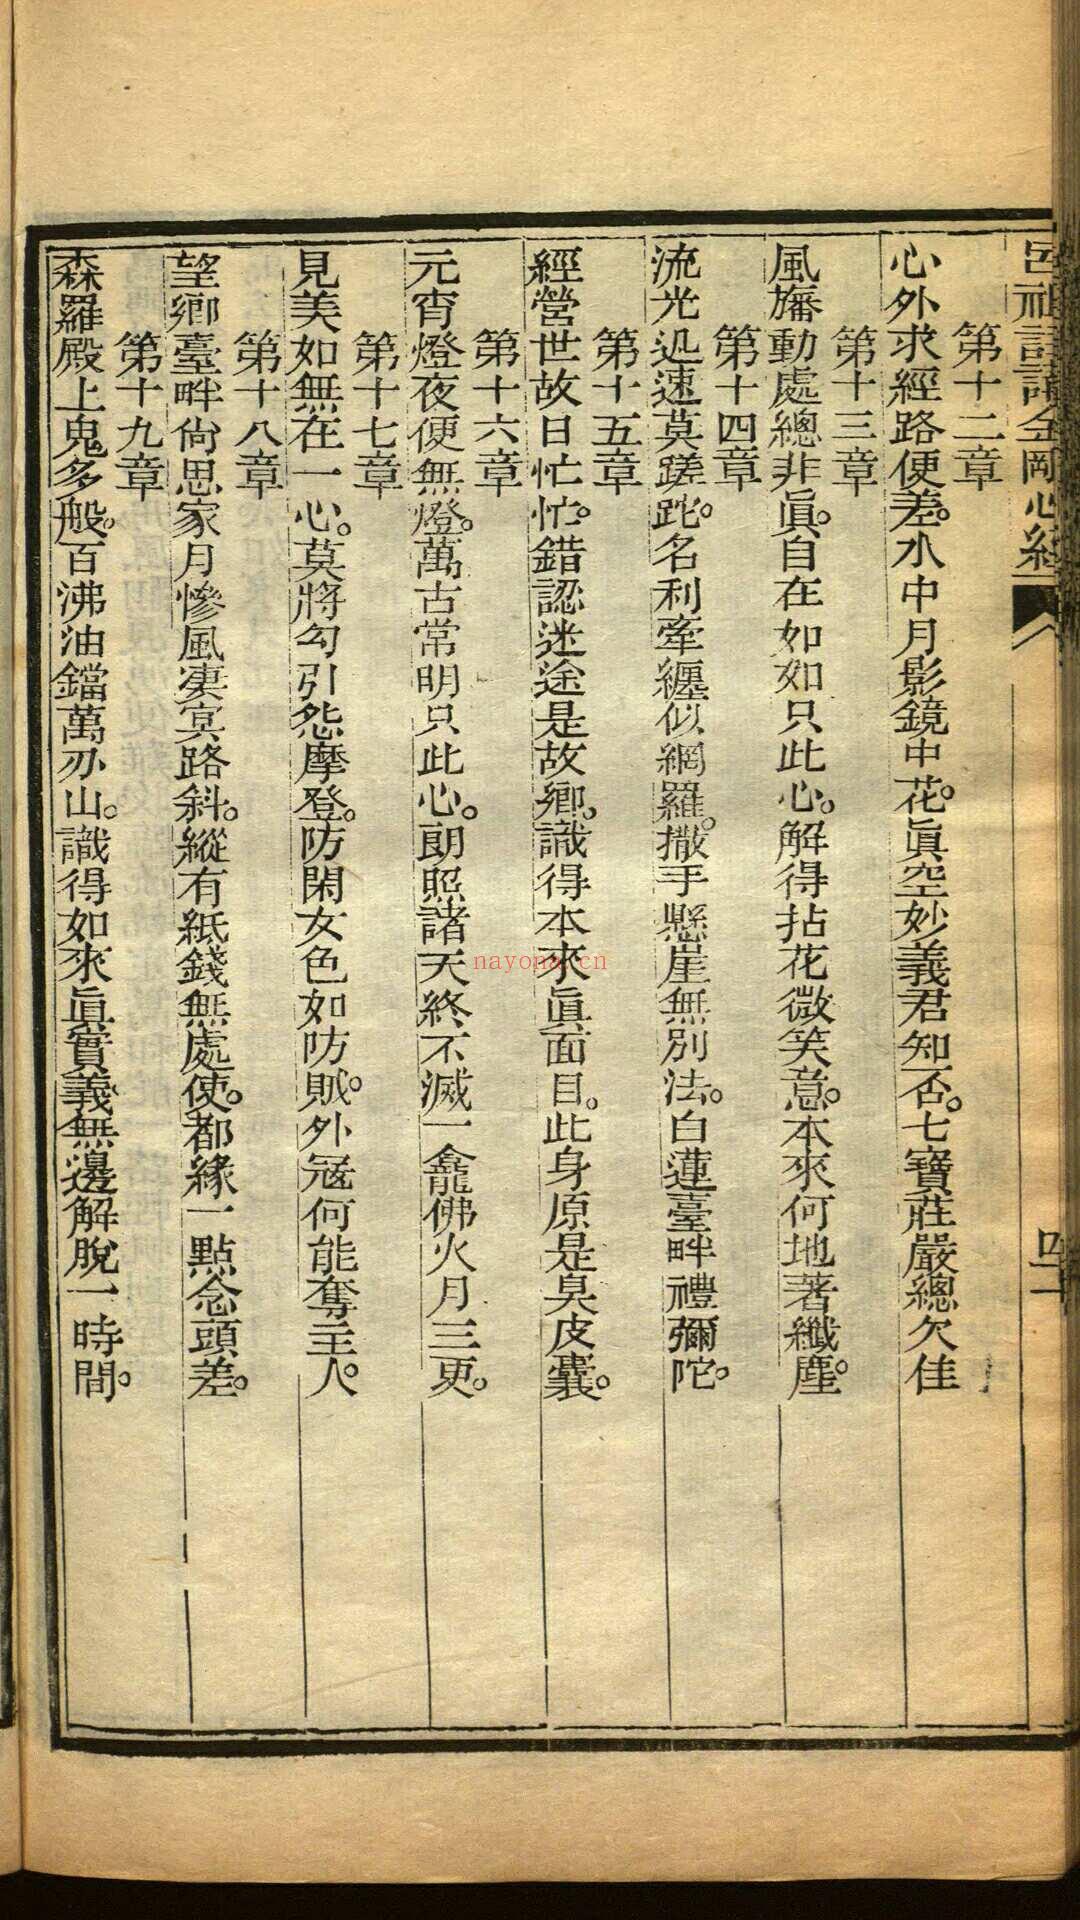 呂祖註講金剛心經
第十二章
心外求經路便差。水中月影鏡中花。眞空妙義君知否。七寶莊嚴總欠佳
第十三章
風旛動處總非眞。自在如如只此心。解得拈花微笑意。本來何地著纖塵。
第十四章
流光迅速莫蹉跎。名利牽纏似網羅。撒手懸崖無別法。白蓮臺畔禮彌陀。
第十五章
經營世故日忙忙。錯認迷途是故鄉。識得本來眞面目。此身原是臭皮囊。
第十六章
元宵燈夜便無燈。萬古常明只此心。朗照諸天終不滅一龕佛火月三更。
第十七章
見美如無在一心。莫將勾引怨摩登。防閑女色如防賊。外寇何能奪主人。
第十八章
望鄉臺畔尙思家月慘風淒冥路斜。縱有紙錢無處使。都緣一點念頭差。
第十九章
森羅殿上鬼多般。百沸油鐺萬刃山。識得如來眞實義無邊解脫一時間。
nayona.cn